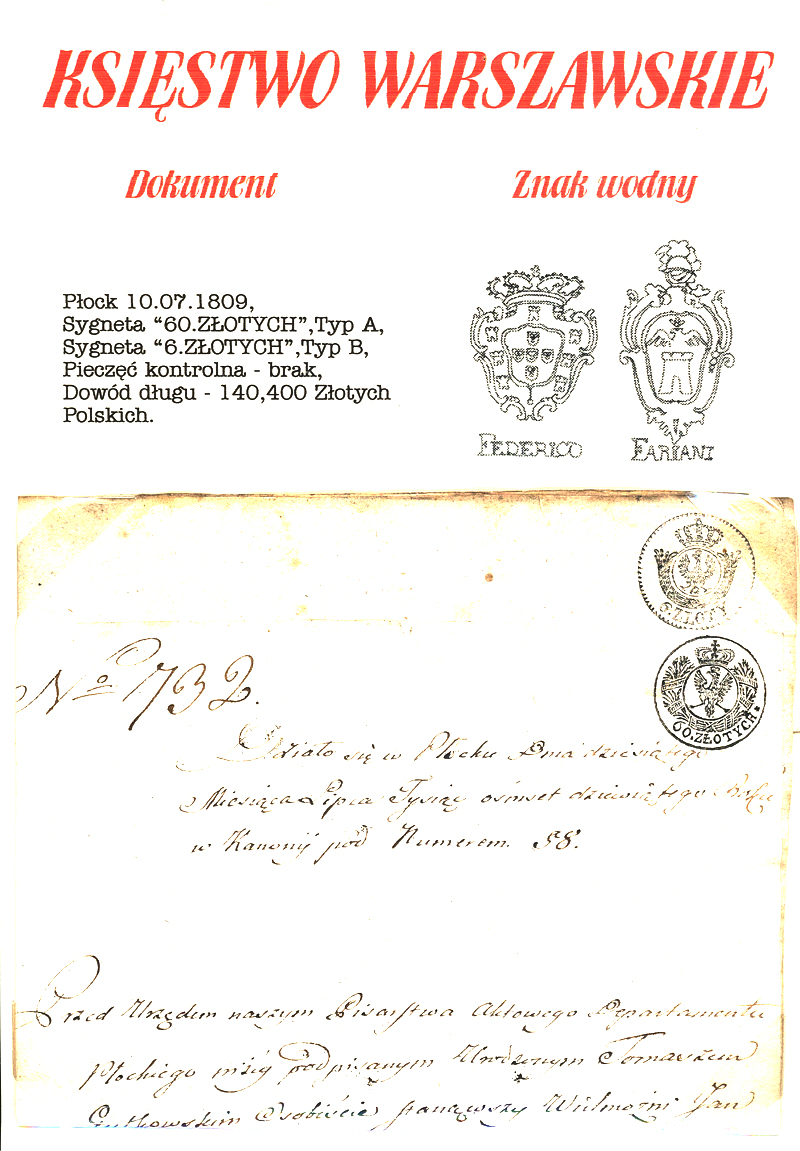 KSIĘSTWO WARSZAWSKIE
Dokument
Znak wodny
Płock 10.07.1809,
Sygneta “60.ZŁOTYCH”,Typ A,
Sygneta “6.ZŁOTYCH”,Typ B,
Pieczęć kontrolna - brak,
Dowód długu - 140,400 Złotych
Polskich.
FEDERICO
FARIANI
6.ZŁOTY
60.ZŁOTYCH.
No 1732.
Działo się w Płocku Dnia dziesiątego
Miesiąca Lipca Tysiąc osmset dziewiątego Roku
w Kanonij pod Numerem. 58.
Przed Urzędem naszym Pisarstwa Aktowego Departamentu
Płockiego niżey podpisanym Urodzonym Tomaszem
Gutkowskim Osobiście stanąwszy Wielmożni Jan